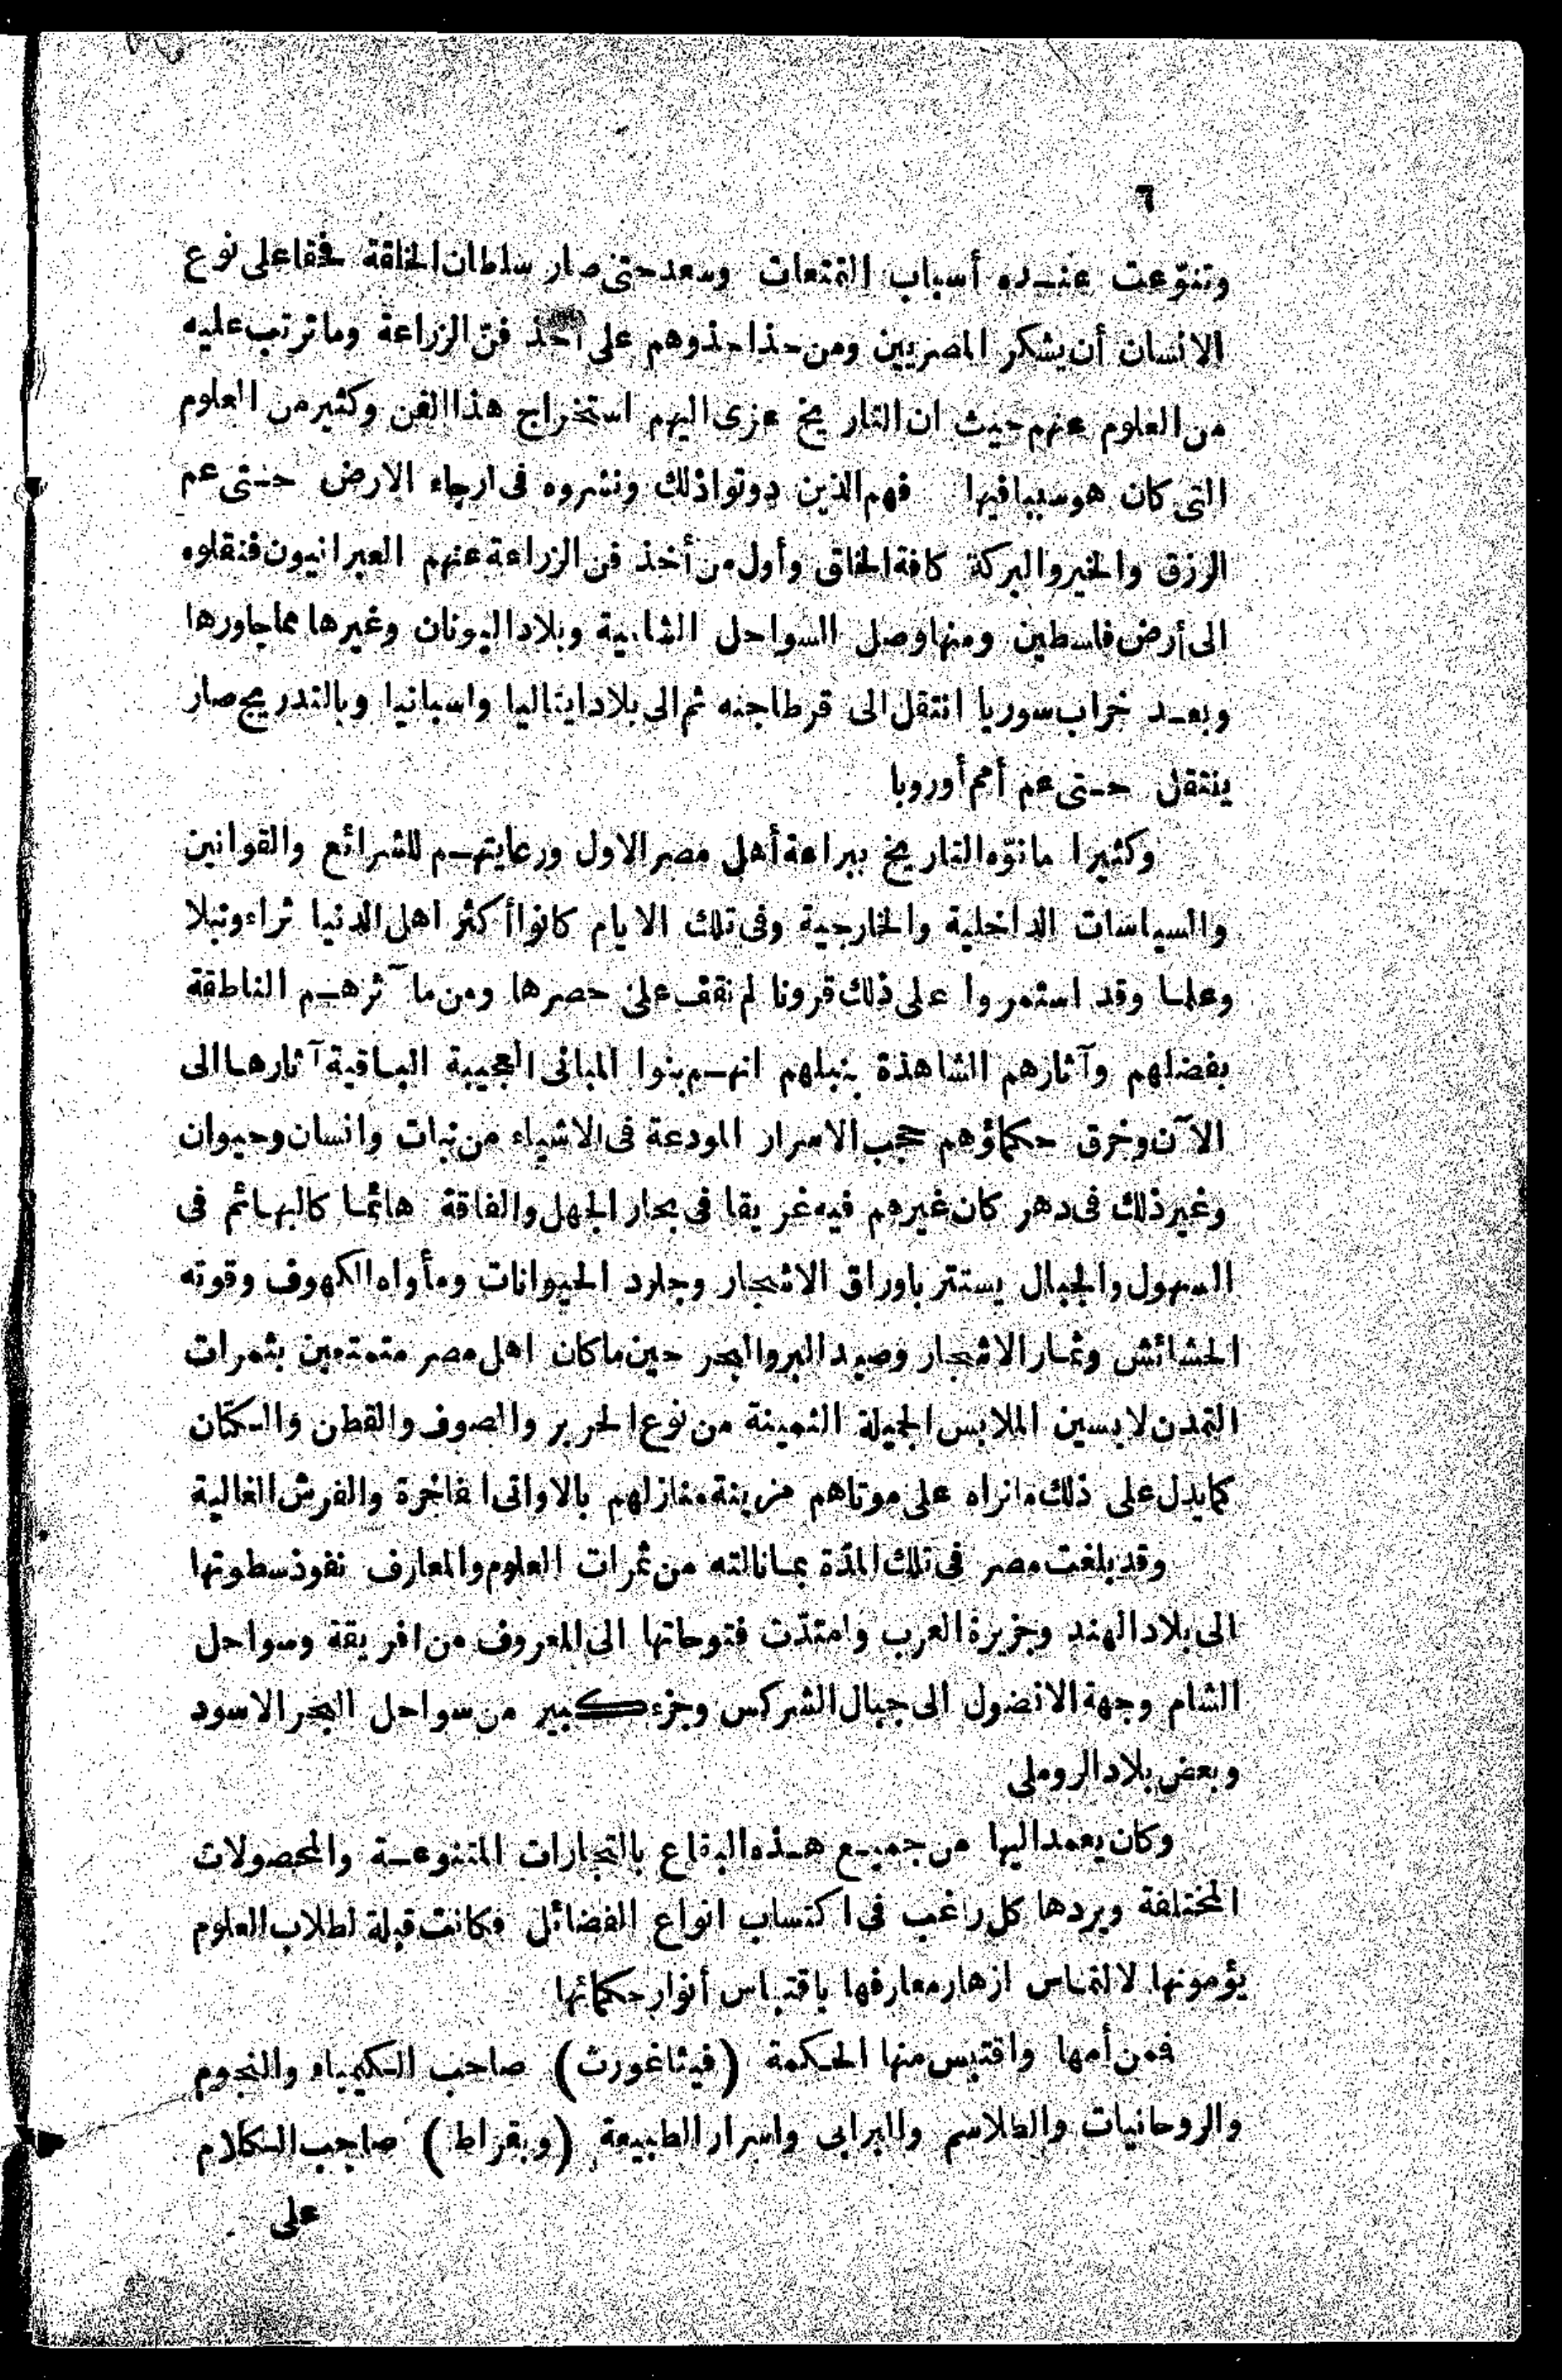 ٦
وتنوّعت عنده أسباب التمتعات وسعد حتى صار سلطان الخلقة فحقا على نوع
الانسان أن يشكر المصريين ومن حذا حذوهم على أخذ فنّ الزراعة وما ترتب عليه
من العلوم عنهم حيث ان التاريخ عزى اليهم استخراج هذا الفن وكثير من العلوم
التى كان هو سببا فيها فهم الذين دوّنوا ذلك ونشروه فى ارجاء الارض حتى عم
الرزق والخير والبركة كافة الخلق وأول من أخذ فن الزراعة عنهم العبرانيون فنقلوه
الى أرض فلسطين ومنها وصل السواحل الشامية وبلاد اليونان وغيرها مما جاورها
وبعد خراب سوريا انتقل الى قرطاجنه ثم الى بلاد ايتاليا واسبانيا وبالتدريج صار
ينتقل حتى عم أمم أوروبا
وكثيرا ما نوّه التاريخ ببراعة أهل مصر الاول ورعايتهم للشرائع والقوانين
والسياسات الداخلية والخارجية وفى تلك الايام كانوا أكثر اهل الدنيا ثراء ونبلا
وعلما وقد استمروا على ذلك قرونا لم نقف على حصرها ومن مآثرهم الناطقة
بفضلهم وآثارهم الشاهدة بنبلهم انهم بنوا المبانى العجيبة الباقية آثارها الى
الآن وخرق حكماؤهم حجب الاسرار المودعة فى الاشياء من نبات وانسان وحيوان
وغير ذلك فى دهر كان غيرهم فيه غريقا فى بحار الجهل والفاقة هائما كالبهائم فى
السهول والجبال يستتر باوراق الاشجار وجلود الحيوانات ومأواه الكهوف وقوته
الحشائش وثمار الاشجار وصيد البر والبحر حين ما كان اهل مصر متمتعين بثمرات
التمدن لابسين الملابس الجميلة الثمينة من نوع الحرير والصوف والقطن والكتان
كما يدل على ذلك ما نراه على موتاهم مزينة منازلهم بالاوانى الفاخرة والفرش الغالية
وقد بلغت مصر فى تلك المدّة بما نالته من ثمرات العلوم والمعارف نفوذ سطوتها
الى بلاد الهند وجزيرة العرب وامتدّت فتوحاتها الى المعروف من افريقة وسواحل
الشام وجهة الانضول الى جبال الشركس وجزء كبير من سواحل البحر الاسود
وبعض بلاد الروملى
وكان يعمد اليها من جميع هذه البقاع بالتجارات المتنوعة والمحصولات
المختلفة ويردها كل راغب فى اكتساب انواع الفضائل فكانت قبلة لطلاب العلوم
يؤمونها لالتماس ازهار معارفها باقتباس أنوار حكمائها
فمن أمها واقتبس منها الحكمة (فيثاغورث) صاحب الكيمياء والنجوم
والروحانيات والطلاسم والبرابى واسرار الطبيعة (وبقراط) صاحب الكلام
على